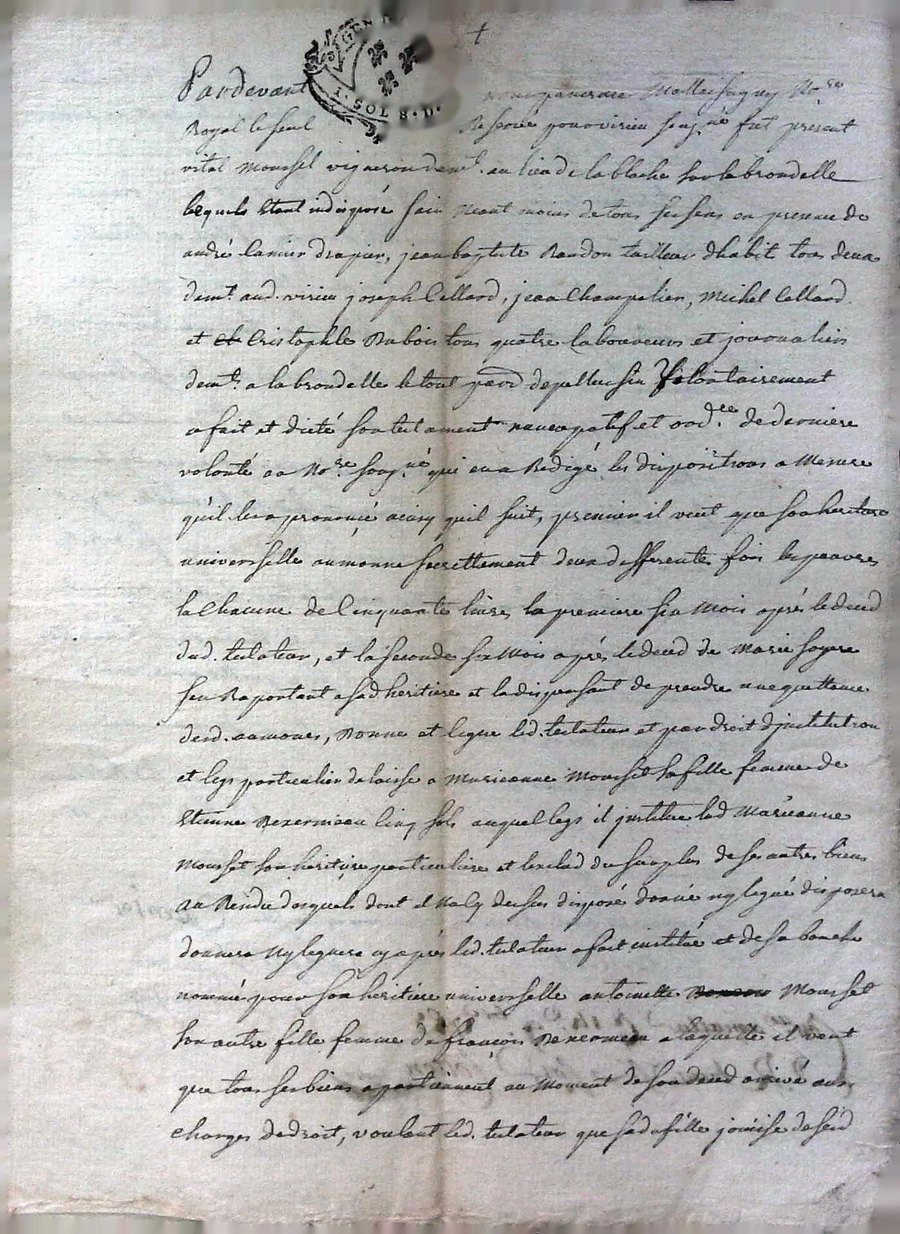 +
GEN
1. SOL 8. D.
Pardevant nous Mallassagny No.re
Royal le seul Reservé pour virieu soug.né fut present
vital Mousset vigneron dem.t au lieu de la blache sur la brondelle
lequels Etant indisposé sain Neant moins de tous ses sens en presence de
andré lanier drapier, jean baptiste Randon tailleur dhabit tous deux
dem.t aud. virieu joseph Cellard, jean Champalier, Michel Cellard
et Cristophle Dubois tous quatre laboureurs et journaliers
dem.t a la brondelle le tout par.e de pellussin Volontairement
a fait et dicté son testament nuncupatif et ord.ce de derniere
volonté au No.re soug.né qui en a Redigé les dispositions a Mesure
qu'il les a prononcé ainsy quil suit, premier il veut que son heritiere
universelle aumonne secrettement deux differentes fois les pauvres
la Chacune de Cinquante livres la premiere six Mois aprés le deced
dud. testateur, et la seconde six Mois aprés le deced de Marie soyere
s'en Raportant a sad heritiere et la dispensant de prendre une quittance
desd. aumones, Donne et legue led. testateur et par droit d'institution
et legs particulier delaisse a Marieanne Mousset sa fille femme de
Etienne Dexermieau Cinq sols auquel legs il institue lad Marieanne
Mousset son heritiere particuliere et lexclud du surplus de ses autres biens
au Residu desquels dont il Na cy dessus disposé donné ny legué disposera
donnera Ny leguera cy aprés led. testateur a fait institué et de sa bouche
nommé pour son heritiere universelle antoinette Mousset
son autre fille femme de françois Dexermieau a laquelle il veut
que tous ses biens apartiennent au Moment de son deced arrivé aux
charges de droit, voulant led. testateur que sad fille jouisse de sesd